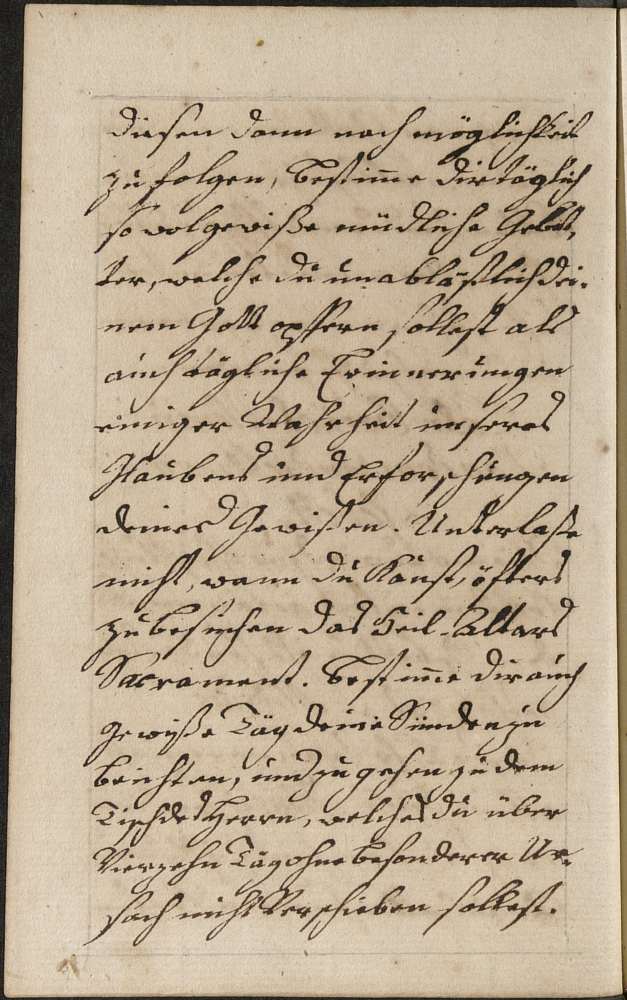 diesen dann nach möglichkeit
zu folgen, bestimme dir täglich
so wol gewiße mündliche Gebet-
ter, welche du unabläßlich dei-
nem Gott opffern sollest als
auch tägliche Erinnerungen
einiger Wahrheit unseres
Glaubens und Erforschungen
deines Gewißen. Unterlaße
nicht, wann du kanst, öfters
zu besuchen das Heil. Altars
Sacrament. Bestimme dir auch
gewiße Täg deine Sünden zu
beichten, und zu gehen zu dem
Tisch des Herrn, welches du über
Vierzehn Täg ohne besonderer Ur-
sach nicht Verschieben sollest.